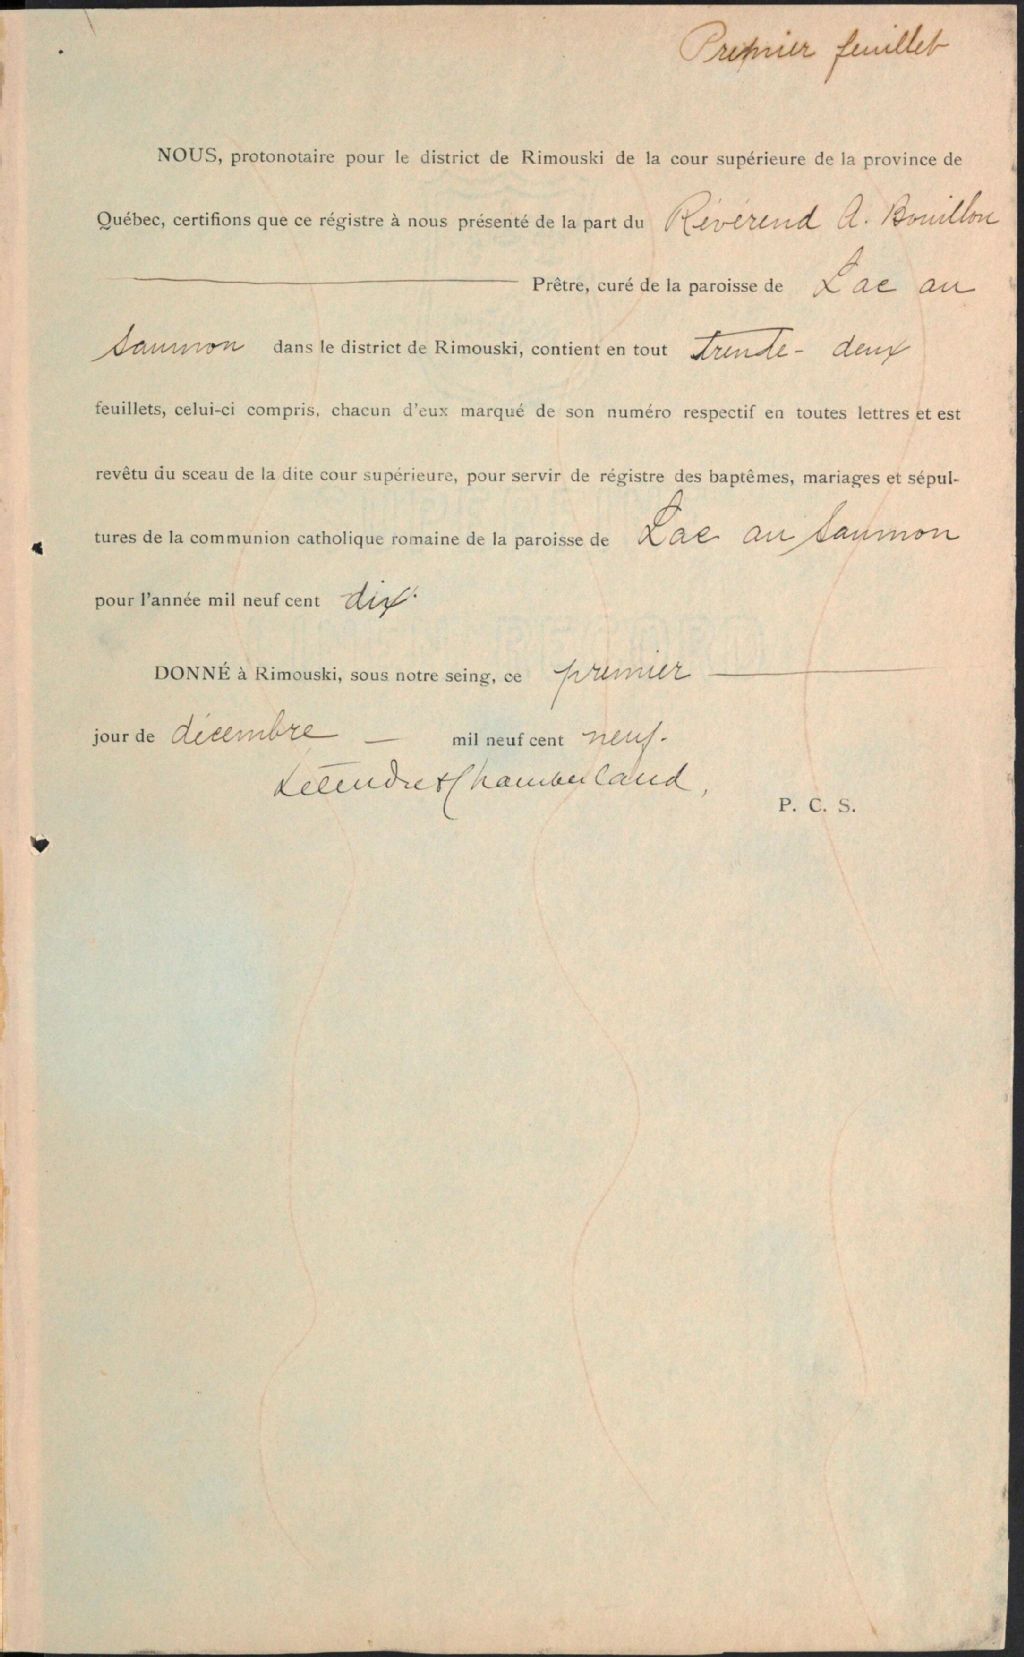 Premier feuillet
NOUS, protonotaire pour le district de Rimouski de la cour supérieure de la province de
Québec, certifions que ce régistre à nous présenté de la part du Révérend A. Bouillon
Prêtre, curé de la paroisse de Lac au
Saumon dans le district de Rimouski, contient en tout trente-deux
feuillets, celui-ci compris, chacun d'eux marqué de son numéro respectif en toutes lettres et est
revêtu du sceau de la dite cour supérieure, pour servir de régistre des baptêmes, mariages et sépul-
tures de la communion catholique romaine de la paroisse de Lac au Saumon
pour l'année mil neuf cent dix.
DONNÉ à Rimouski, sous notre seing, ce premier
jour de décembre — mil neuf cent neuf.
Letendre & Chamberland,
P. C. S.